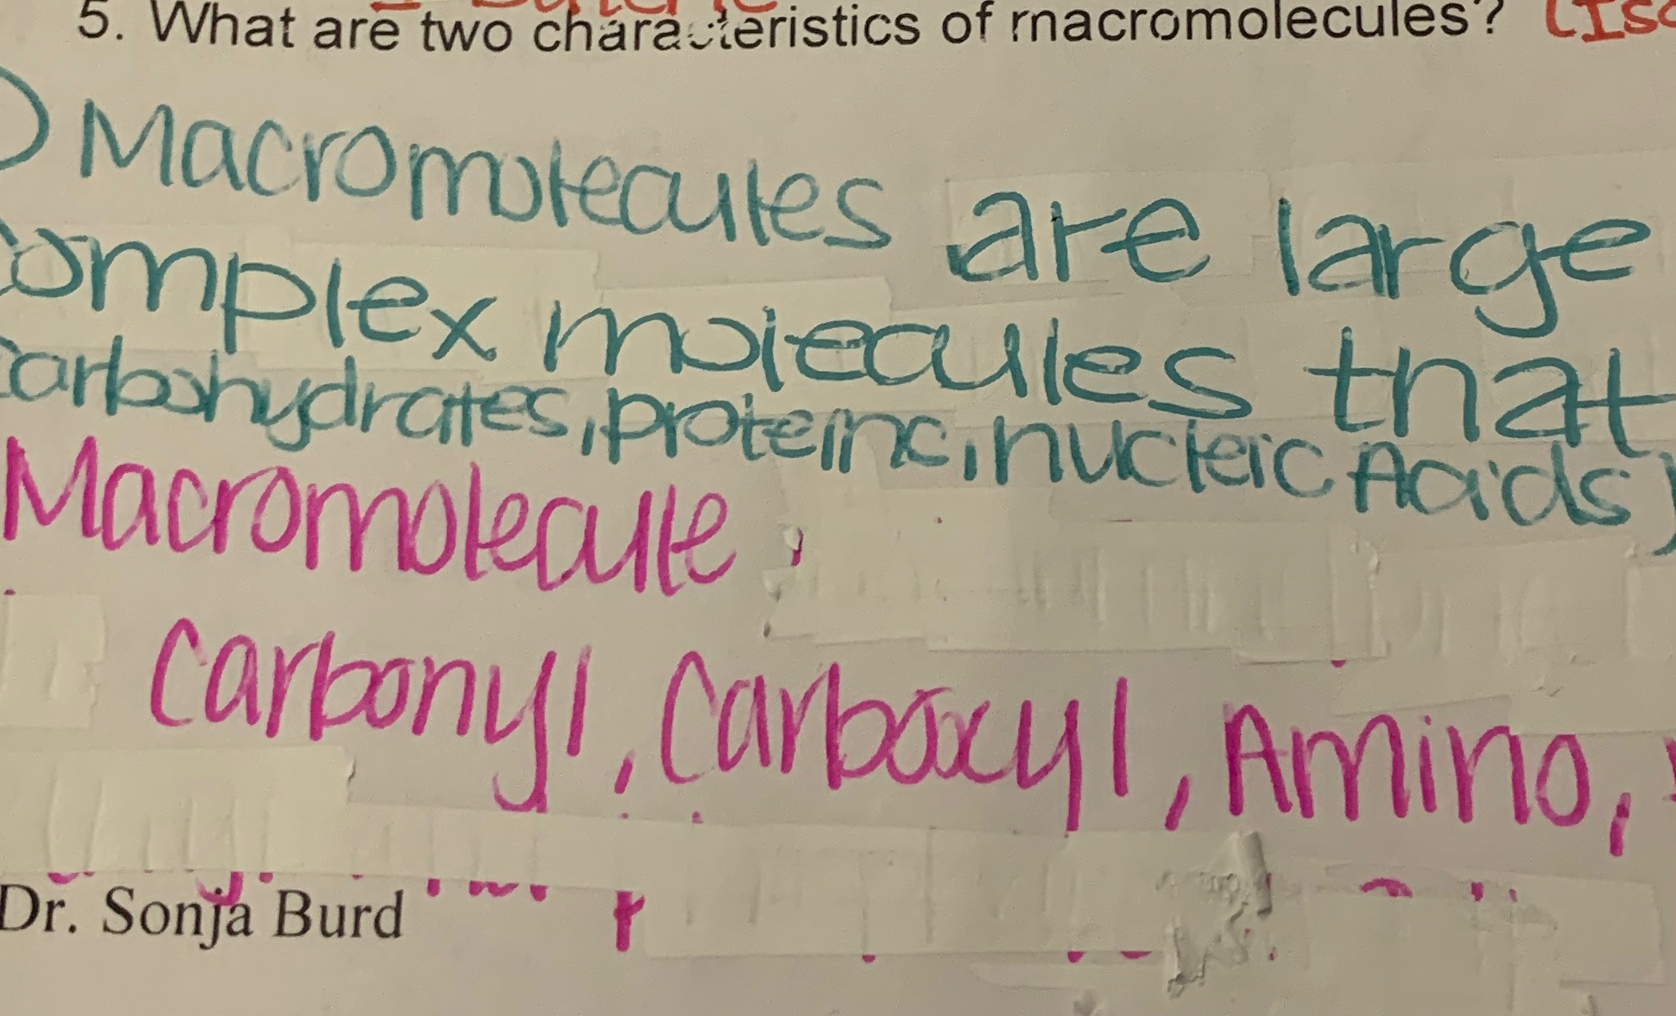 5. What are two characteristics of macromolecules? (Iso
Macromolecules are large
complex molecules that
carbohydrates, proteins, nucleic Acids)
Macromolecule
Carbonyl, Carboxyl, Amino,
Dr. Sonja Burd